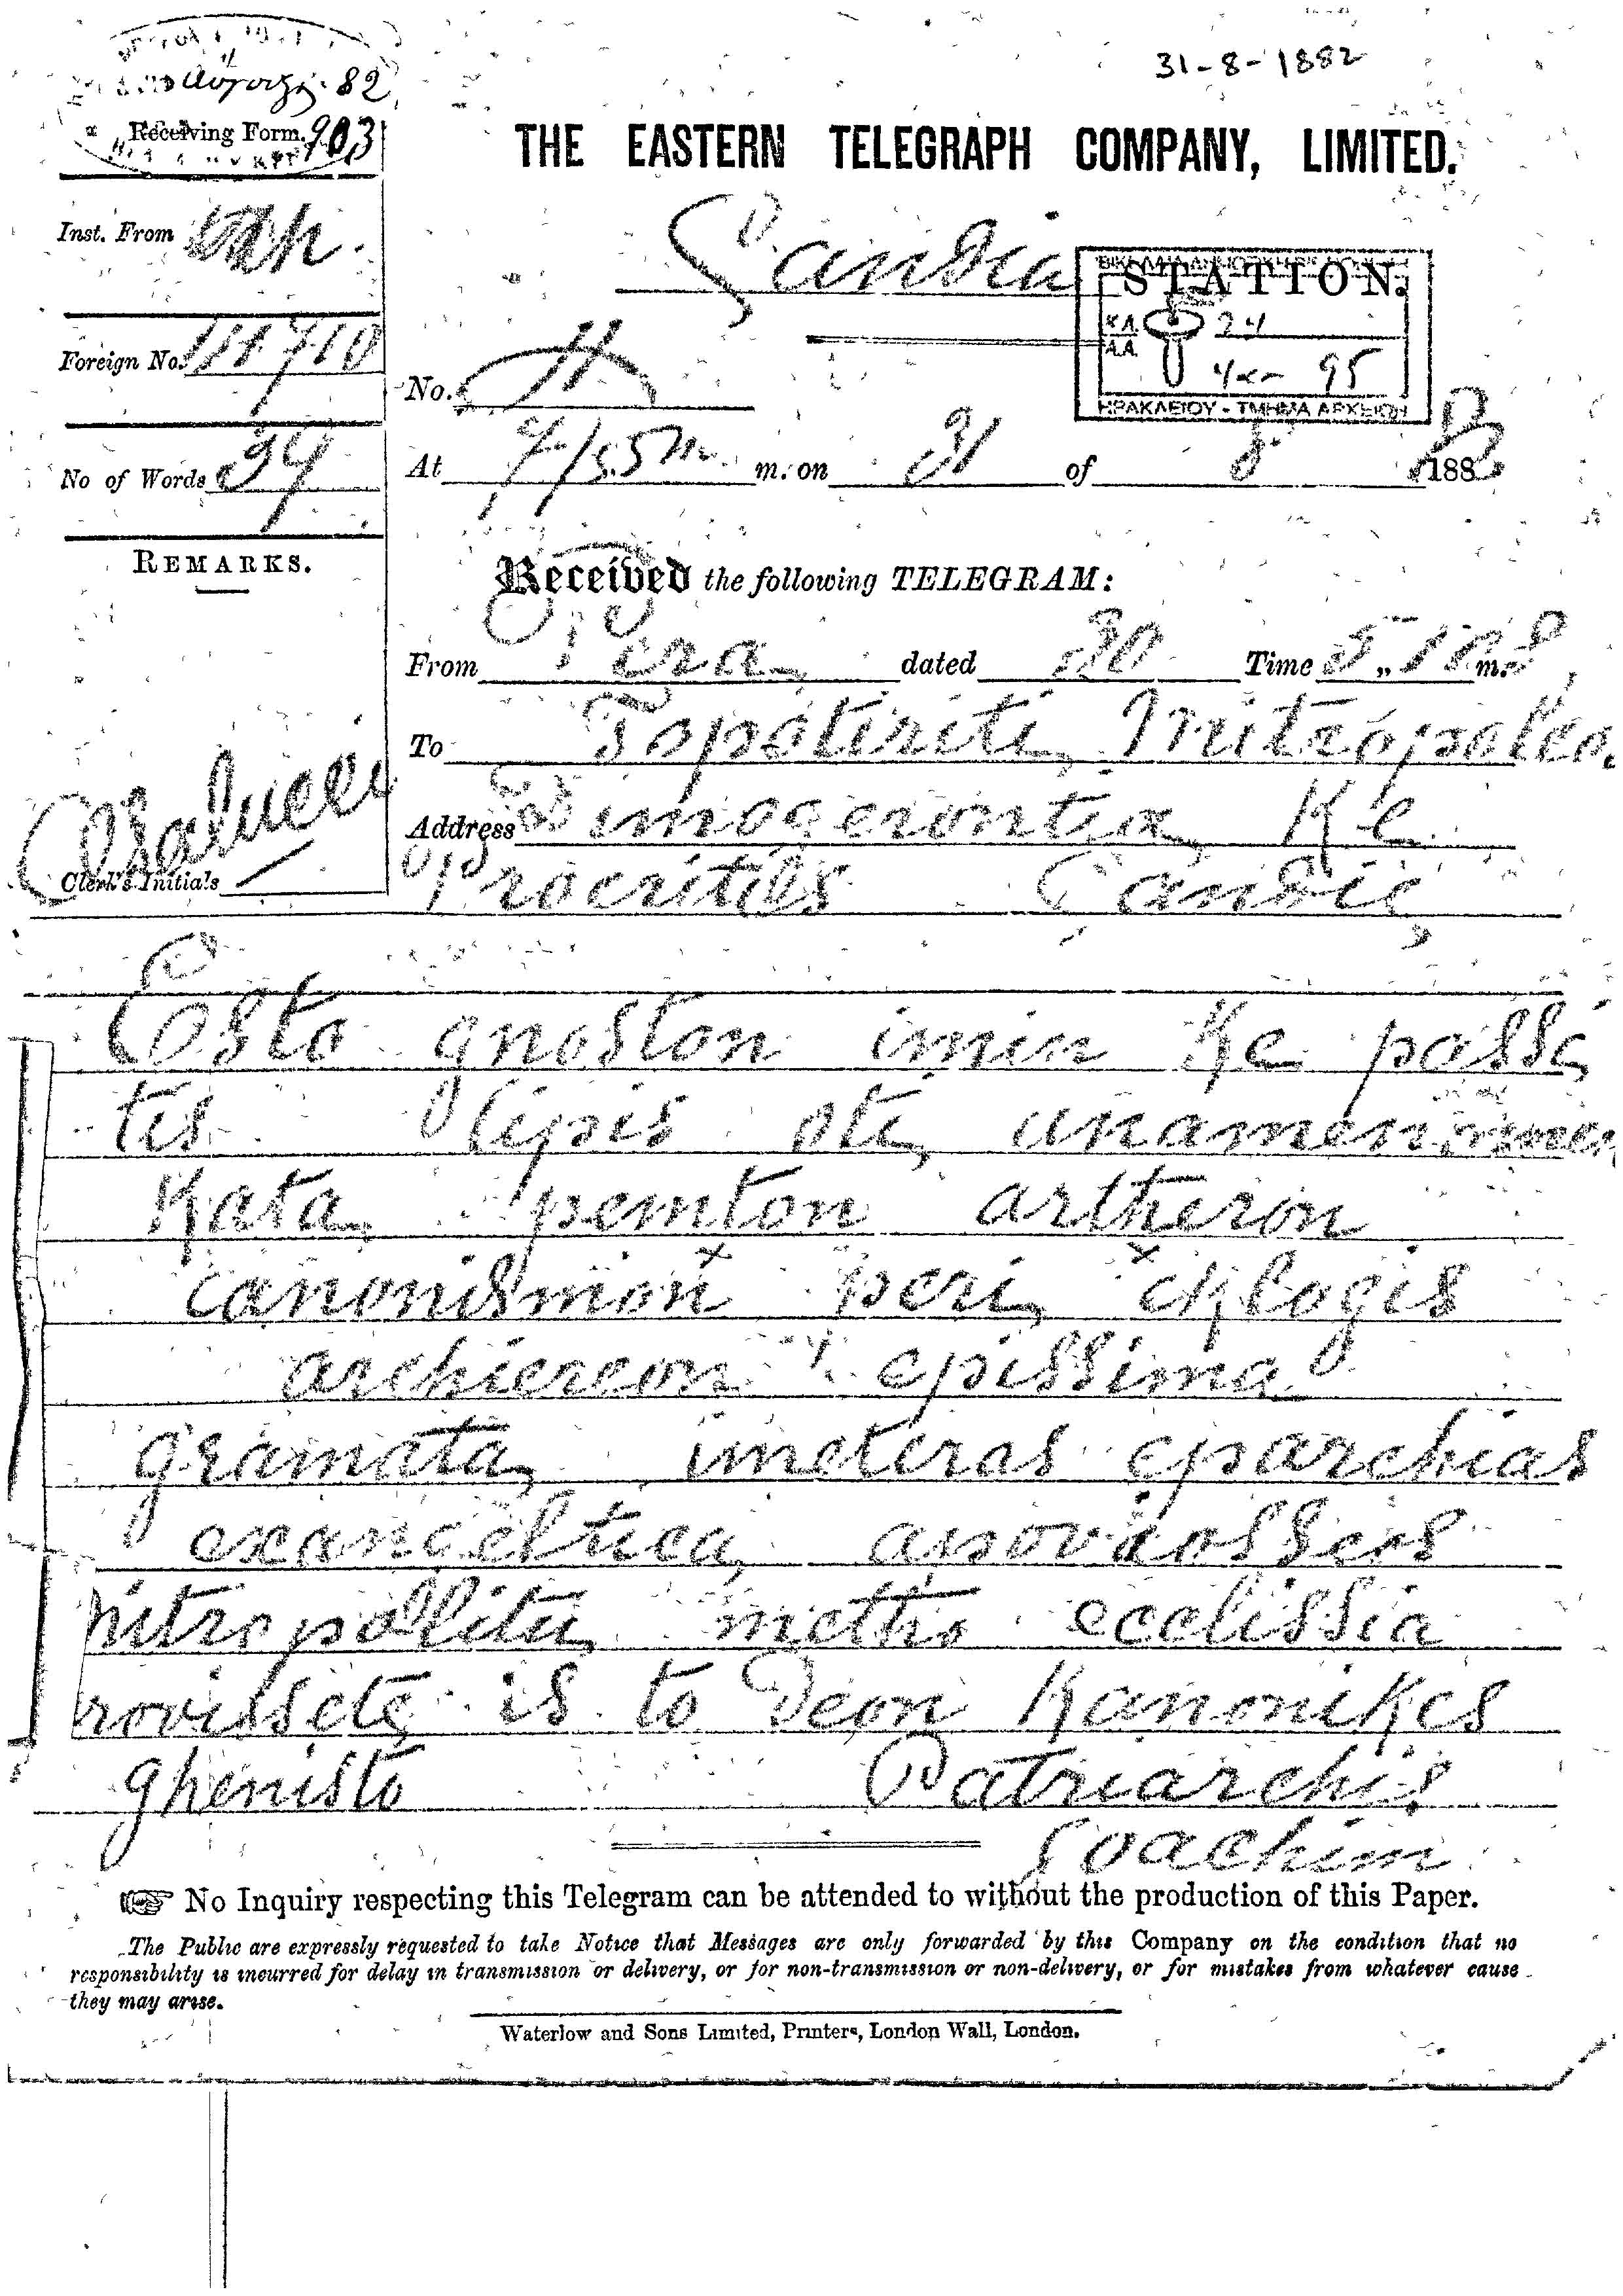 31-8-1882
82
Receiving Form. 903
THE EASTERN TELEGRAPH COMPANY, LIMITED.
Inst. From
Candia STATION.
Κ.Λ. 24
Α.Α. 95
ΗΡΑΚΛΕΙΟΥ - ΤΜΗΜΑ ΑΡΧΕΙΩΝ
Foreign No.
No. 11
No of Words 34
At m. on 31 of 8 1882
REMARKS.
Received the following TELEGRAM:
From Pera dated 30 Time m.
To Topotiriti Mitropoleos
Address Dimogerontia Ke
Procritus Candie
Clerk's Initials
Esto gnoston imin Ke passi
tis oti anamenomen
Kata pemton arthron
canonismon peri eklogis
archiereon epissima
gramata imeteras eparchias
apoviosseos
mitropolitu ecclissia
is to deon Kanonikes
ghenisto Patriarchis
Joachim
No Inquiry respecting this Telegram can be attended to without the production of this Paper.
The Public are expressly requested to take Notice that Messages are only forwarded by this Company on the condition that no
responsibility is incurred for delay in transmission or delivery, or for non-transmission or non-delivery, or for mistakes from whatever cause
they may arise.
Waterlow and Sons Limited, Printers, London Wall, London.